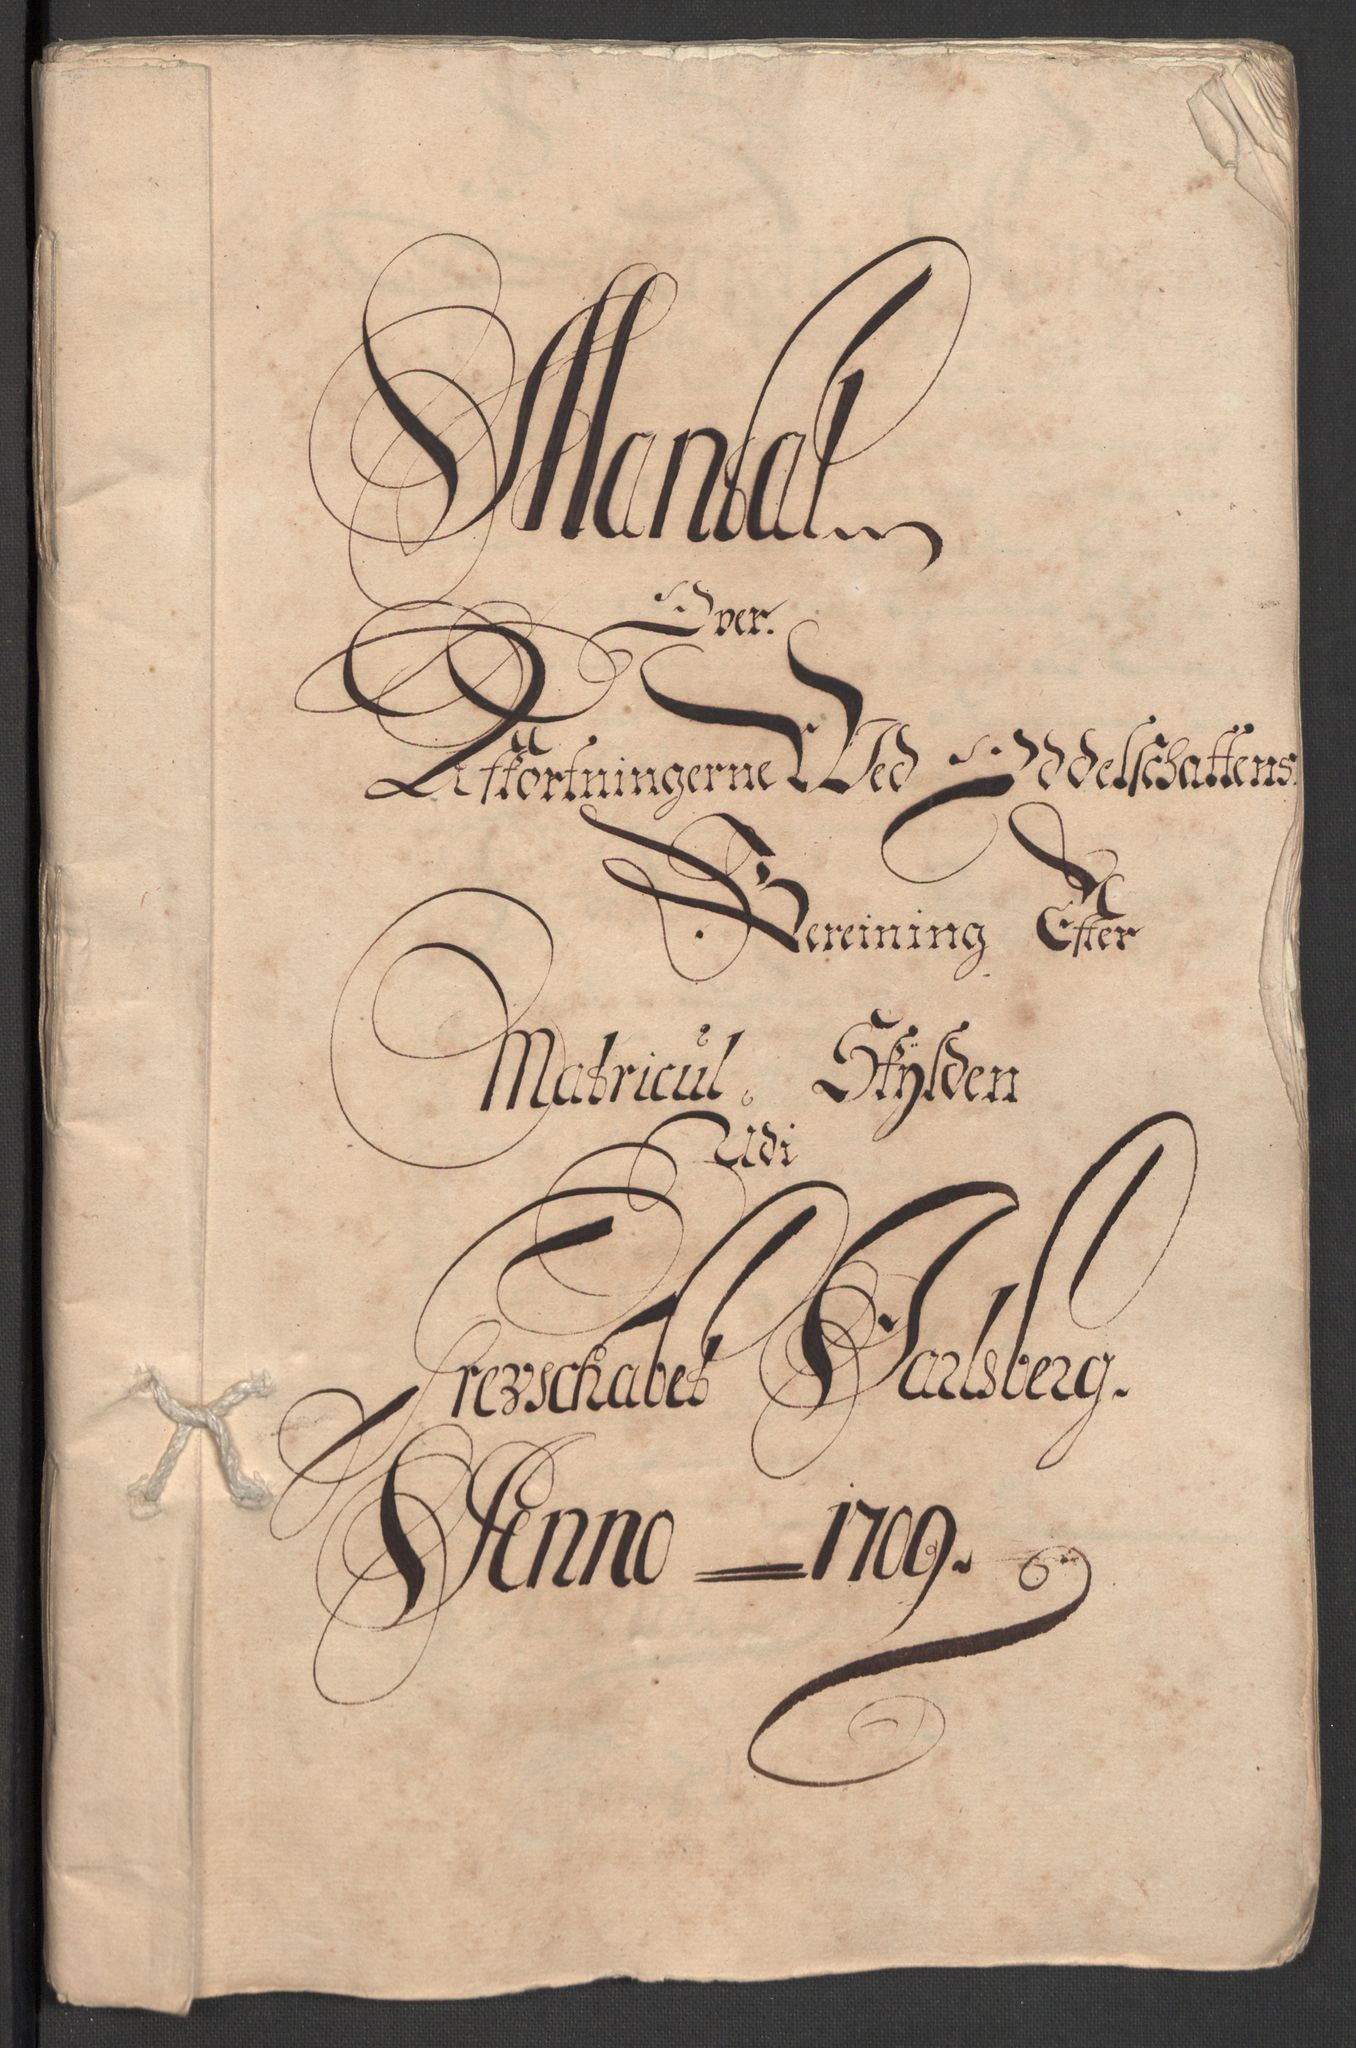 Mandtal
Over.
Afkortningerne Wed Oddelschattens
Bereining Efter
Matricul Skylden
Udi
Grevschabet Jarlsberg.
Anno 1709.